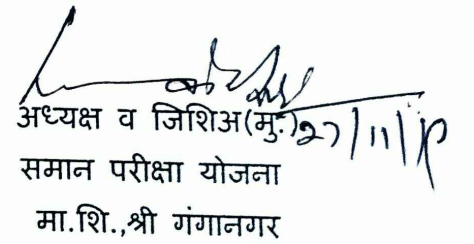 अध्यक्ष व जिशिअ(मु.) 27/11/
समान परीक्षा योजना
मा.शि.,श्री गंगानगर